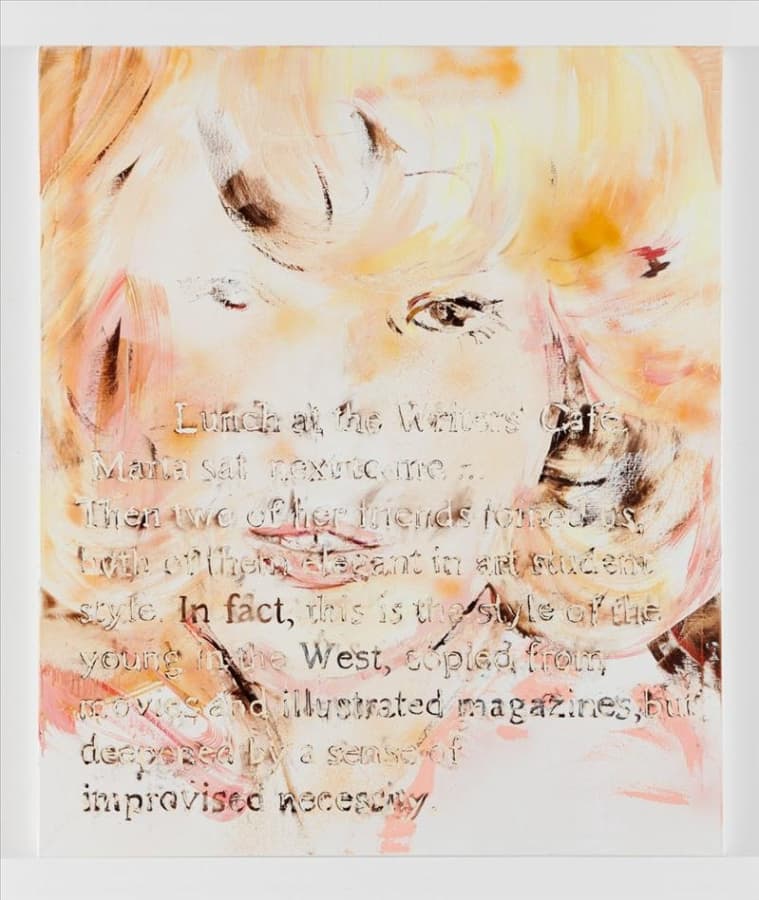 Lunch at the Writers' Café.
Maria sat next to me ...
Then two of her friends joined us,
both of them elegant in art student
style. In fact, this is the style of the
young in the West, copied from
movies and illustrated magazines, but
deepened by a sense of
improvised necessity.